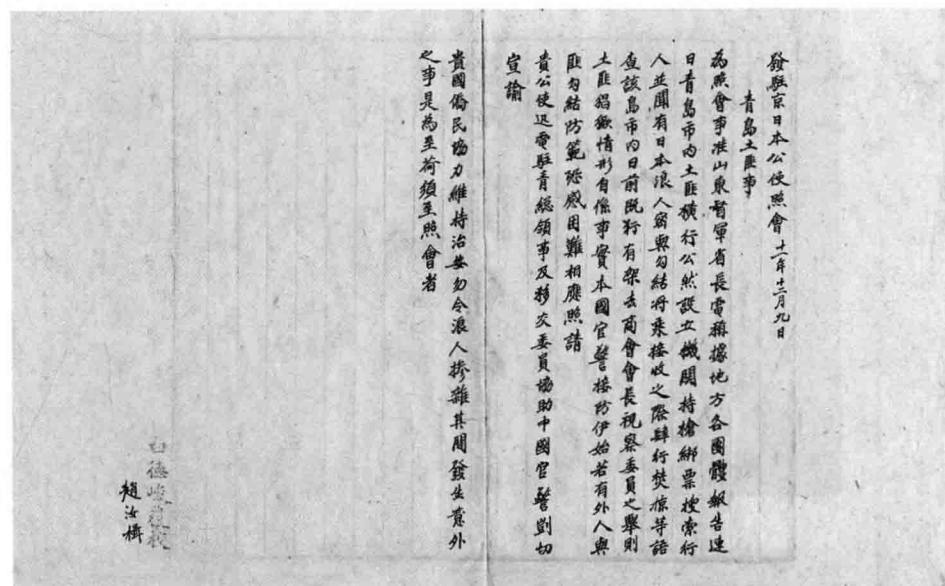 發駐京日本公使照會 十一年十二月九日
青島土匪事
為照會事准山東督軍省長電稱據地方各團體報告連
日青島市內土匪橫行公然設立機關持槍綁票搜索行
人並聞有日本浪人窩與勾結將乘接收之際肆行焚掠等語
查該島市內日前既行有架去商會會長視察委員之舉則
土匪猖獗情形自係事實本國官警接防伊始若有外人與
匪勾結防範殊感困難相應照請
貴公使迅電駐青總領事及移交委員協助中國官警剴切
宣諭
貴國僑民協力維持治安勿令浪人摻雜其間發生意外
之事是為至荷須至照會者
趙汝楫